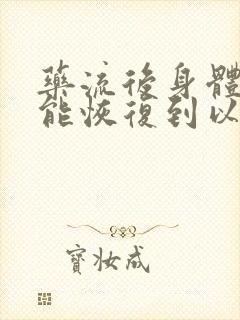 藥流後身體
能恢復到以
寶妝成